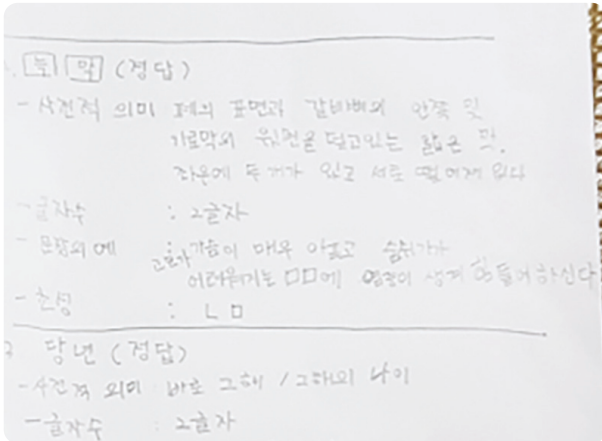 늑 막 (정답)
- 사전적 의미 폐의 표면과 갈비뼈의 안쪽 및
가로막의 윗면을 덮고있는 얇은 막.
좌우에 두 개가 있고 서로 떨어져 있다
- 글자수 : 2글자
- 문장의 예 : 고모가 가슴이 매우 아프고 숨쉬기가
어려워지는 □□에 염증이 생겨 힘들어하신다
- 초성 : ㄴ ㅁ
당년 (정답)
- 사전적 의미 : 바로 그해 / 그해의 나이
- 글자수 : 2글자